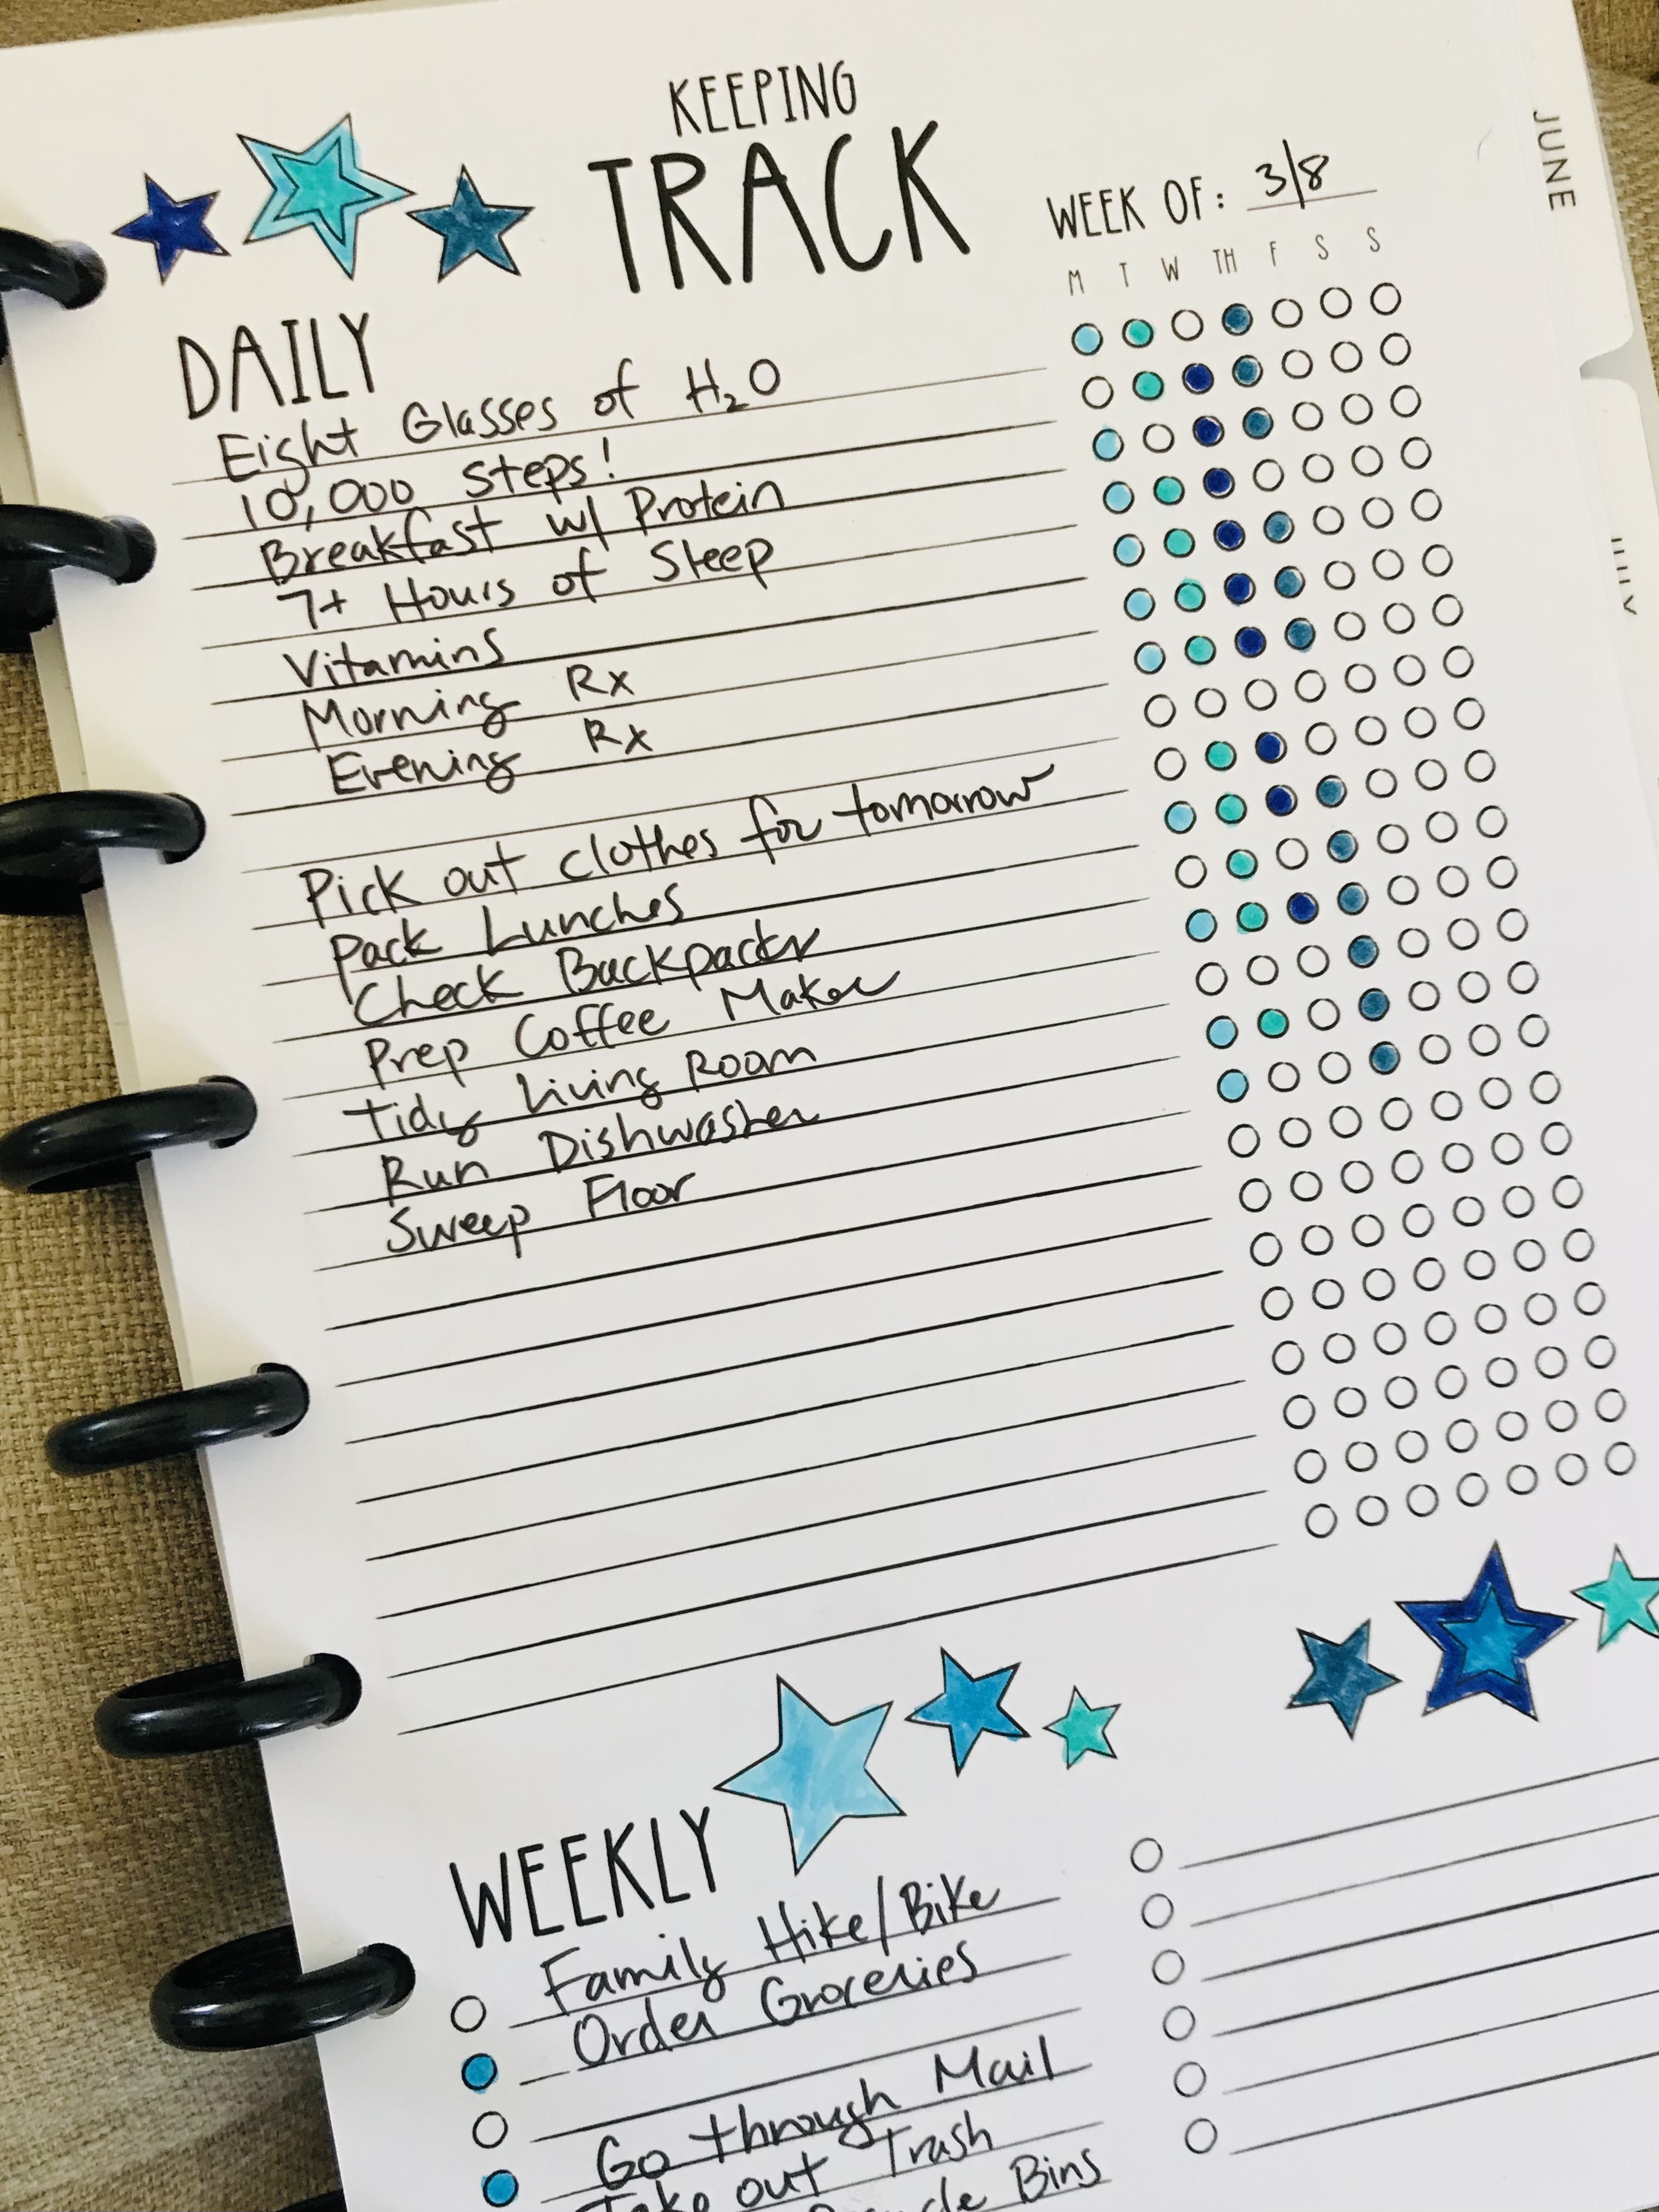 KEEPING
TRACK
WEEK OF: 3/8
M T W TH F S S
DAILY
Eight Glasses of H₂O
10,000 Steps!
Breakfast w/ Protein
7+ Hours of Sleep
Vitamins
Morning Rx
Evening Rx
Pick out clothes for tomorrow
Pack Lunches
Check Backpacks
Prep Coffee Maker
Tidy Living Room
Run Dishwasher
Sweep Floor
WEEKLY
Family Hike/Bike
Order Groceries
Go through Mail
Take out Trash
Bins
JUNE
JULY